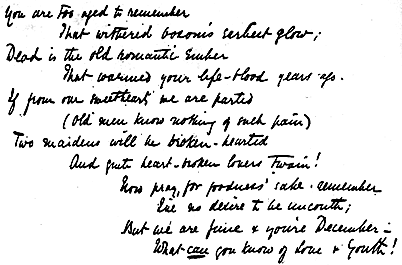 You are too aged to remember
That withered bosom's earliest glow;
Dead is the old romantic ember
That warmed your life-blood years ago.
If from our sweethearts we are parted
(Old men know nothing of such pain)
Two maidens will be broken-hearted
And quite heart-broken lovers twain!
Now pray, for goodness' sake, remember
We've no desire to be uncouth;
But we are June & you're December –
What can you know of Love & Youth!